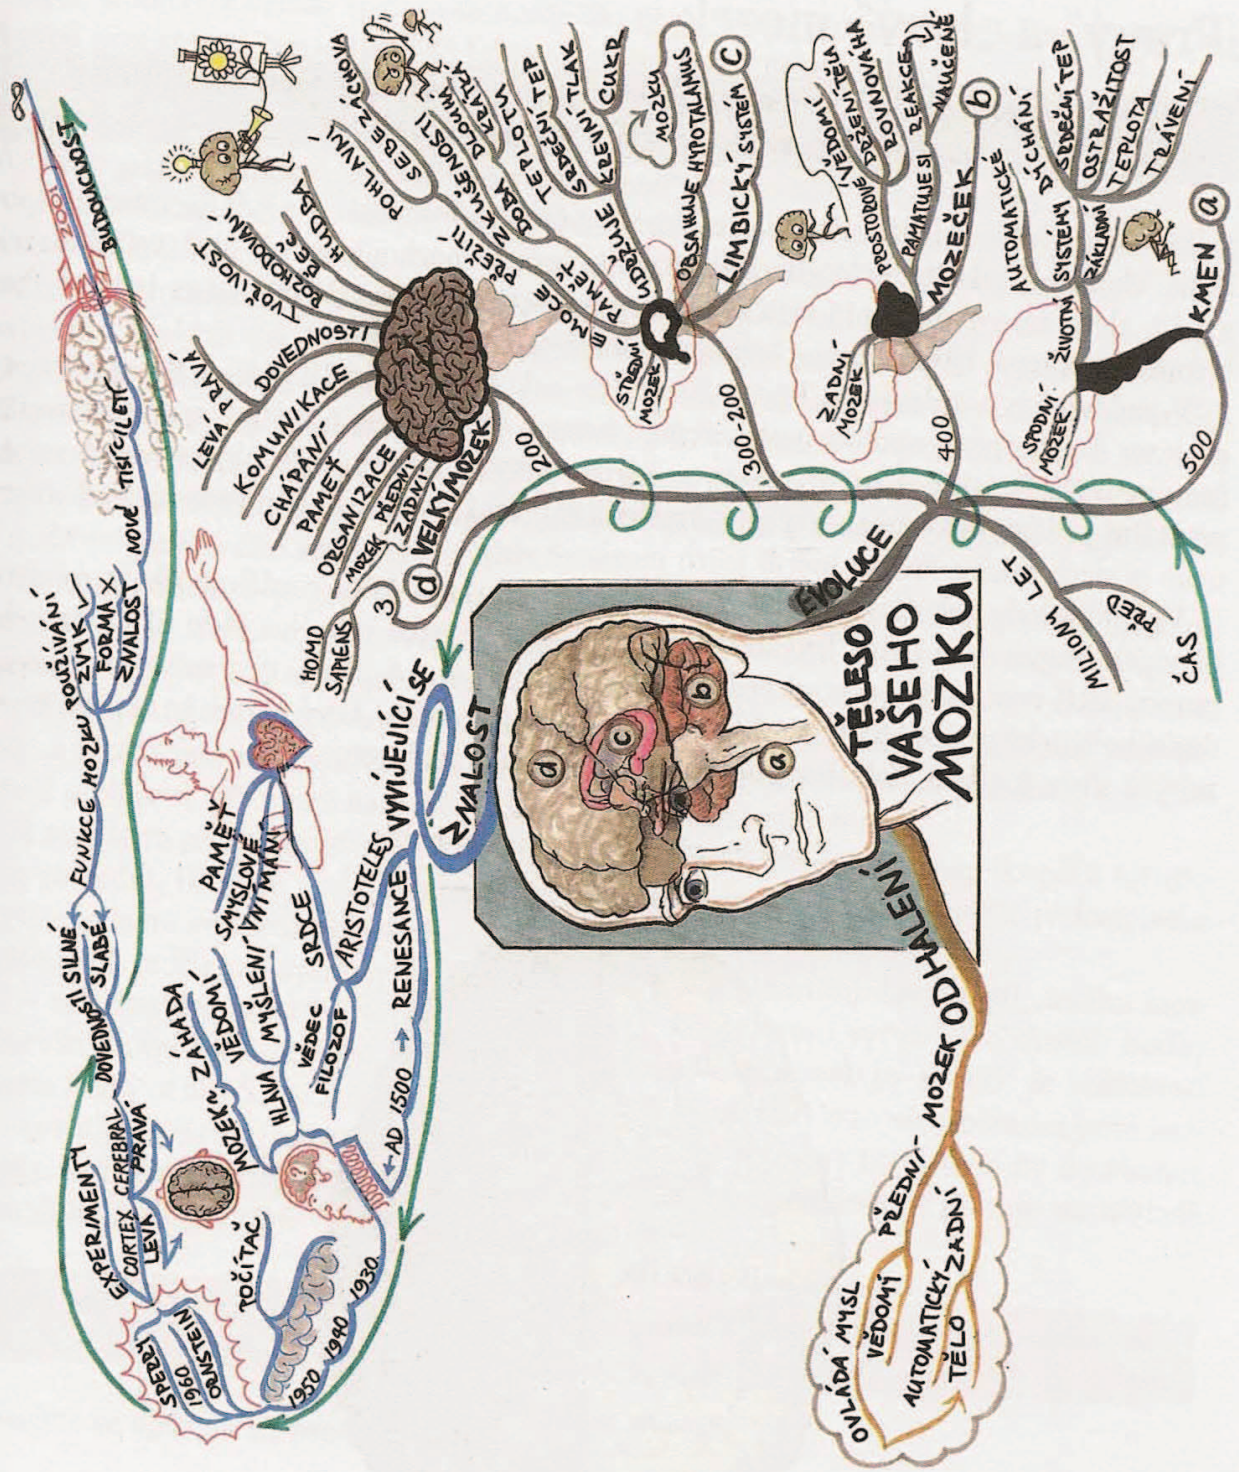 TĚLESO
VAŠEHO
MOZKU
a
b
c
d
EVOLUCE
MILIONY LET
PŘED
ČAS
500
KMEN
a
SPODNÍ
MOZEK
ŽIVOTNÍ
SYSTÉMY
AUTOMATICKÉ
ZÁKLADNÍ
DÝCHÁNÍ
SRDEČNÍ TEP
OSTRAŽITOST
TEPLOTA
TRÁVENÍ
400
MOZEČEK
b
ZADNÍ
MOZEK
PROSTOROVÉ VĚDOMÍ
DRŽENÍ TĚLA
ROVNOVÁHA
PAMATUJE SI
REAKCE
NAUČENÉ
300-200
LIMBICKÝ SYSTÉM
C
STŘEDNÍ
MOZEK
OBSAHUJE HYPOTALAMUS
MOZKU
UDRŽUJE
TEPLOTA
SRDEČNÍ TEP
KREVNÍ TLAK
CUKR
PAMĚŤ
DOBA
DLOUHÁ
KRÁTKÁ
ZKUŠENOSTI
EMOCE
PŘEŽITÍ
POHLAVNÍ
SEBEZÁCHOVA
200
VELKÝ MOZEK
d
MOZEK
PŘEDNÍ
ZADNÍ
ORGANIZACE
PAMEŤ
CHÁPÁNÍ
KOMUNIKACE
DOVEDNOSTI
LEVÁ
PRAVÁ
TVOŘIVOST
ROZHODOVÁNÍ
ŘEČ
HUDBA
3
HOMO
SAPIENS
ZNALOST
VYVÍJEJÍCÍ SE
ARISTOTELES
SRDCE
PAMĚŤ
SMYSLOVÉ
VNÍMÁNÍ
VĚDEC
FILOZOF
HLAVA
MYŠLENÍ
VĚDOMÍ
MOZEK
ZÁHADA
RENESANCE
AD 1500
1930
1940
1950
POČÍTAČ
SPERRY
1960
ORNSTEIN
EXPERIMENTY
CORTEX CEREBRAL
LEVÁ
PRAVÁ
DOVEDNOSTI
SILNÉ
SLABÉ
FUNKCE MOZKU
POUŽÍVÁNÍ
ZVYK
FORMA
ZNALOST
NOVÉ TISÍCILETÍ
2001
BUDOUCNOST
∞
ODHALENÍ
MOZEK
PŘEDNÍ
VĚDOMÝ
OVLÁDÁ MYSL
ZADNÍ
AUTOMATICKÝ
TĚLO